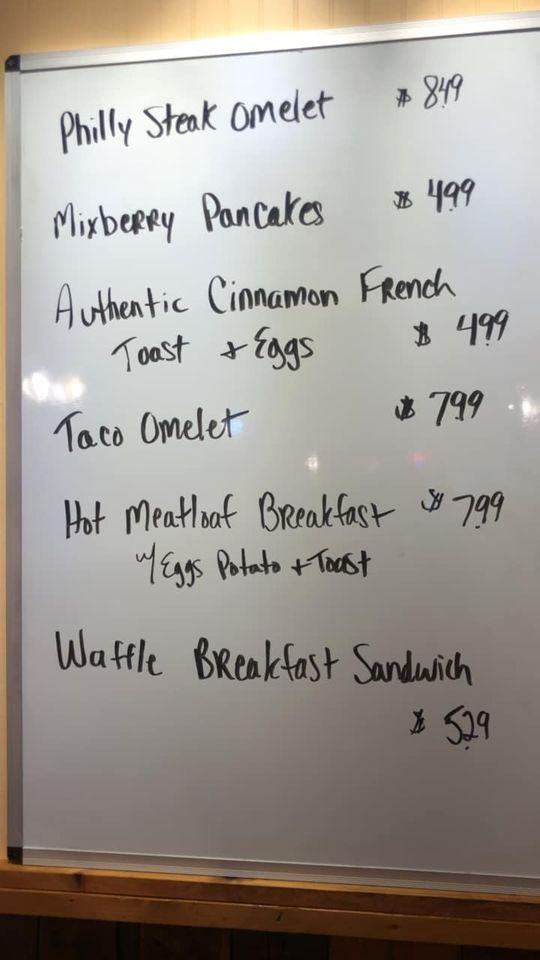 Philly Steak Omelet $ 8.49
Mixberry Pancakes $ 4.99
Authentic Cinnamon French
Toast + Eggs $ 4.99
Taco Omelet $ 7.99
Hot Meatloaf Breakfast $ 7.99
w/ Eggs Potato + Toast
Waffle Breakfast Sandwich
$ 5.29